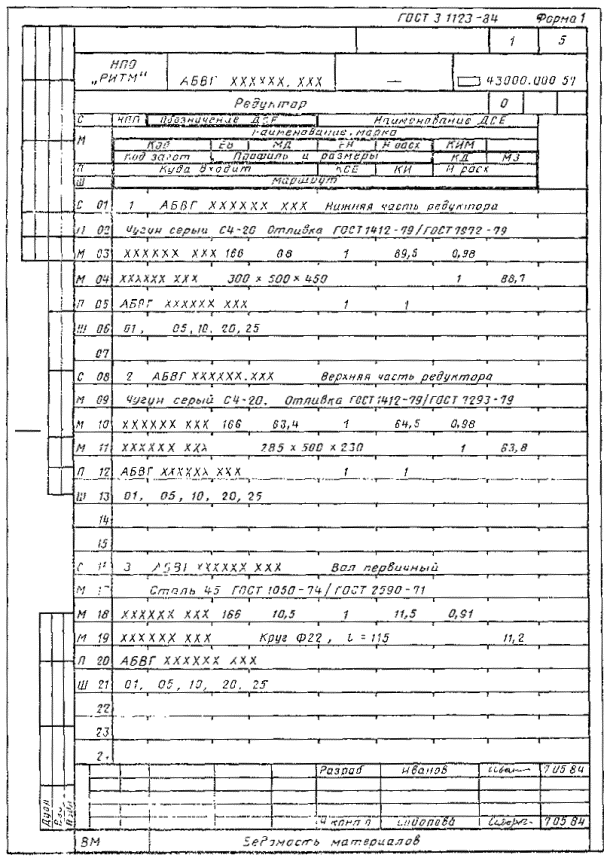 ГОСТ 3.1123-84 Форма 1
1 5
НПО „РИТМ" АБВГ ХХХХХХ. ХХХ — 43000.000 51
Редуктор 0
С НПП Обозначение ДСЕ Наименование ДСЕ
М Наименование, марка
Код ЕВ МД ЕН Н расх КИМ
Код загот Профиль и размеры КД МЗ
П Куда входит КСЕ КИ Н расх
Ш Маршрут
С 01 1 АБВГ ХХХХХХ ХХХ Нижняя часть редуктора
02 Чугун серый СЧ-20 Отливка ГОСТ 1412-79/ГОСТ 1972-79
М 03 ХХХХХХ ХХХ 166 88 1 89,5 0,98
М 04 ХХХХХХ ХХХ 300 × 500 × 450 1 88,7
П 05 АБВГ ХХХХХХ ХХХ 1 1
Ш 06 01, 05, 10, 20, 25
07
С 08 2 АБВГ ХХХХХХ.ХХХ Верхняя часть редуктора
М 09 Чугун серый СЧ-20. Отливка ГОСТ 1412-79/ГОСТ 7293-79
М 10 ХХХХХХ ХХХ 166 63,4 1 64,5 0,98
М 11 ХХХХХХ ХХХ 285 × 500 × 230 1 63,8
П 12 АБВГ ХХХХХХ ХХХ 1 1
Ш 13 01, 05, 10, 20, 25
14
15
С 3 АБВГ ХХХХХХ ХХХ Вал первичный
М Сталь 45 ГОСТ 1050-74/ГОСТ 2590-71
М 18 ХХХХХХ ХХХ 166 10,5 1 11,5 0,91
М 19 ХХХХХХ ХХХ Круг Ф22, l = 115 11,2
П 20 АБВГ ХХХХХХ ХХХ
Ш 21 01, 05, 10, 20, 25
22
23
Разраб Иванов 7 05 84
Н контр 7 05 84
Дубл
ВМ Ведомость материалов